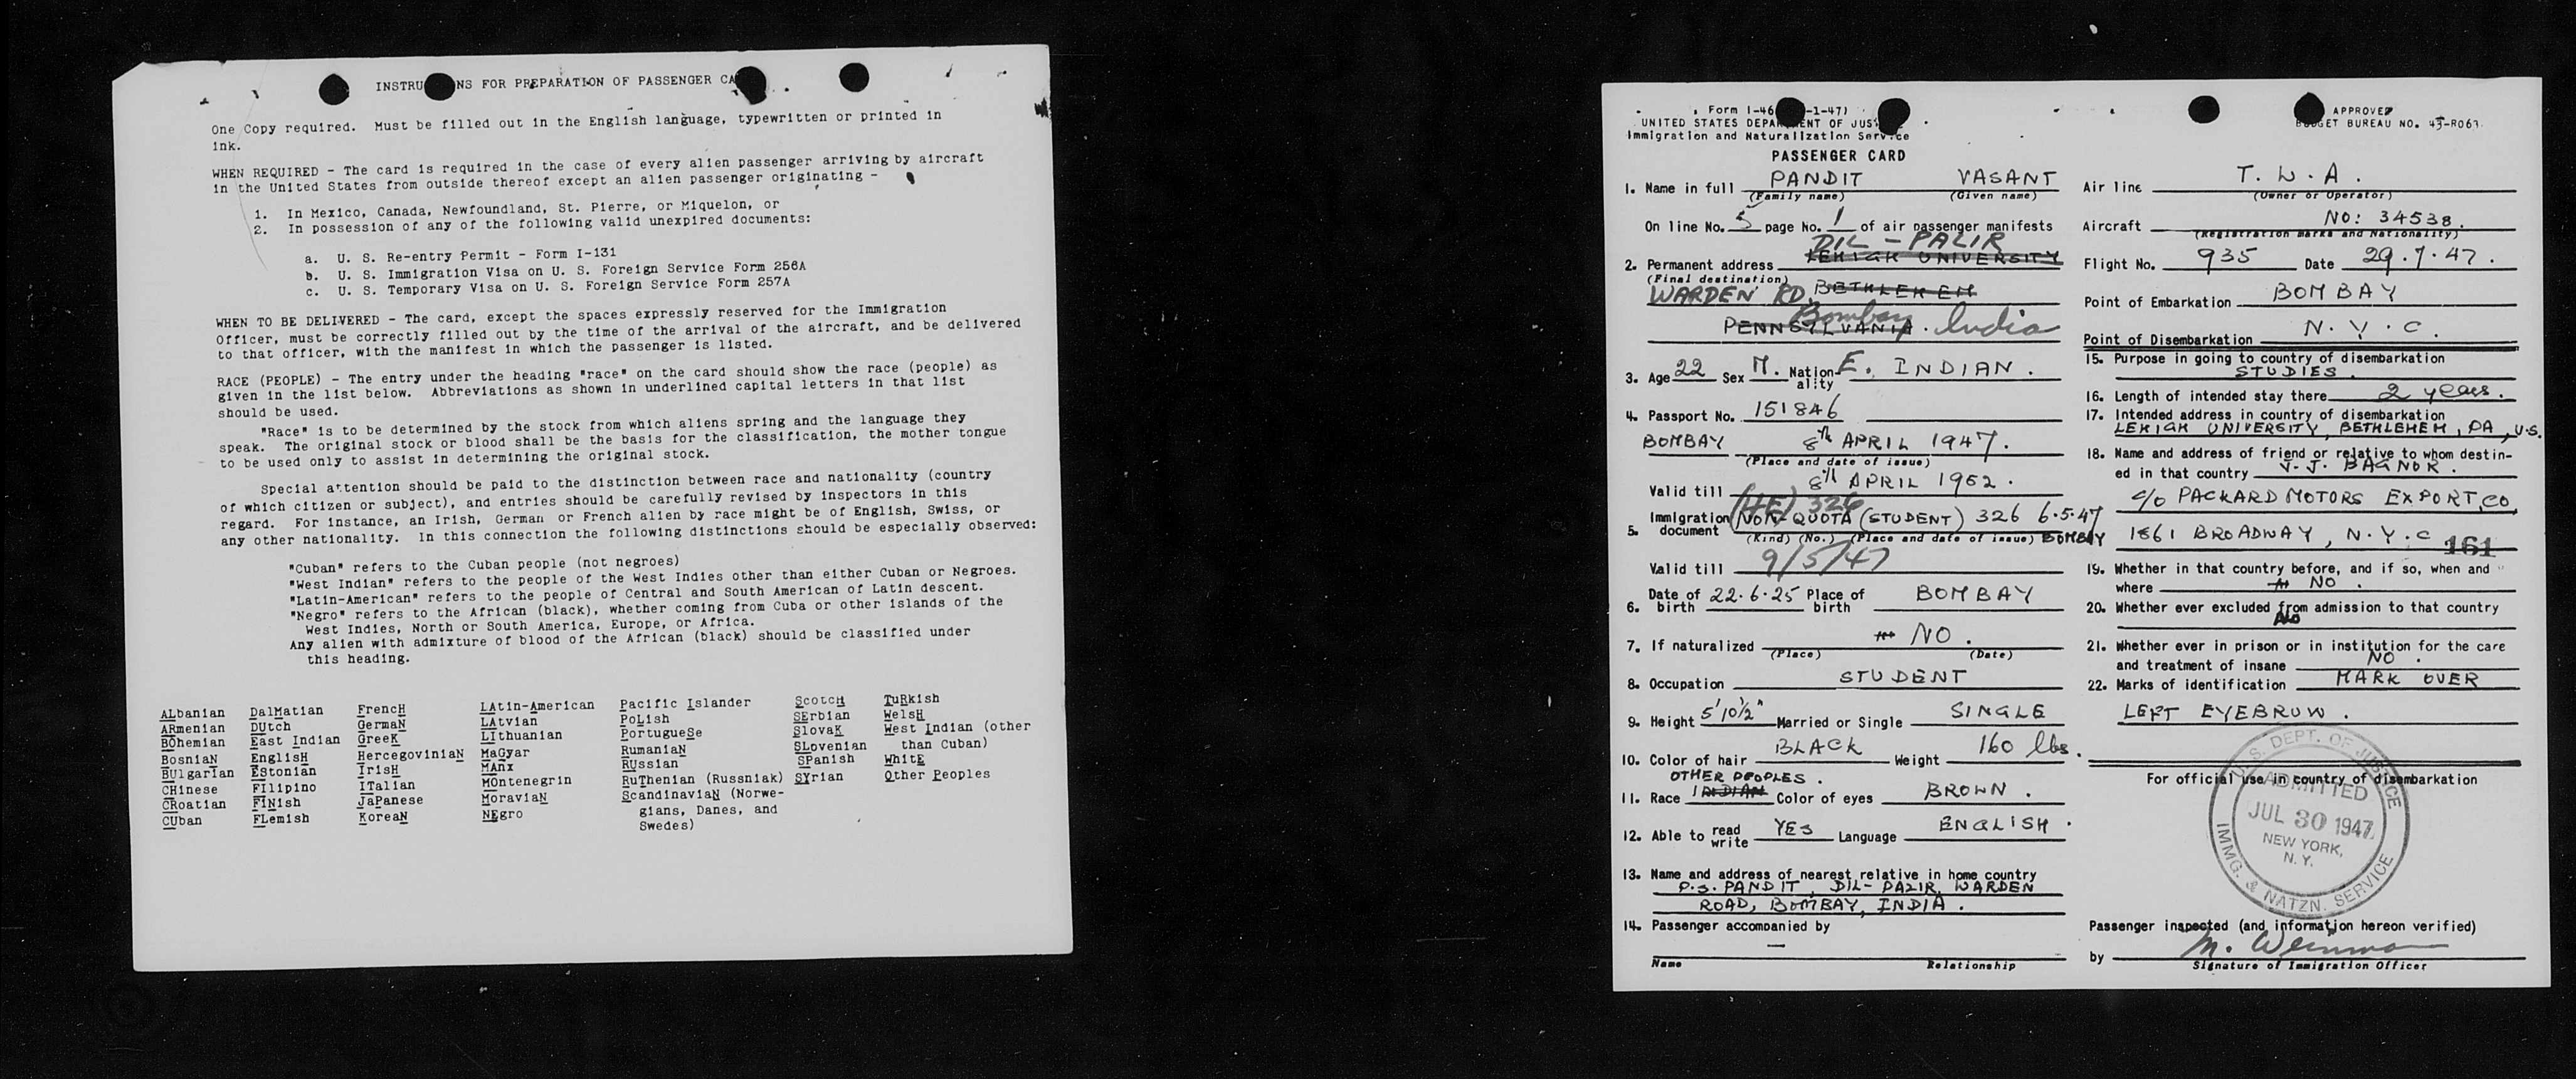 INSTRU NS FOR PREPARATION OF PASSENGER CA
One Copy required. Must be filled out in the English language, typewritten or printed in
ink.
WHEN REQUIRED - The card is required in the case of every alien passenger arriving by aircraft
in the United States from outside thereof except an alien passenger originating -
1. In Mexico, Canada, Newfoundland, St. Pierre, or Miquelon, or
2. In possession of any of the following valid unexpired documents:
a. U. S. Re-entry Permit - Form I-131
b. U. S. Immigration Visa on U. S. Foreign Service Form 256A
c. U. S. Temporary Visa on U. S. Foreign Service Form 257A
WHEN TO BE DELIVERED - The card, except the spaces expressly reserved for the Immigration
Officer, must be correctly filled out by the time of the arrival of the aircraft, and be delivered
to that officer, with the manifest in which the passenger is listed.
RACE (PEOPLE) - The entry under the heading "race" on the card should show the race (people) as
given in the list below. Abbreviations as shown in underlined capital letters in that list
should be used.
"Race" is to be determined by the stock from which aliens spring and the language they
speak. The original stock or blood shall be the basis for the classification, the mother tongue
to be used only to assist in determining the original stock.
Special attention should be paid to the distinction between race and nationality (country
of which citizen or subject), and entries should be carefully revised by inspectors in this
regard. For instance, an Irish, German or French alien by race might be of English, Swiss, or
any other nationality. In this connection the following distinctions should be especially observed:
"Cuban" refers to the Cuban people (not negroes)
"West Indian" refers to the people of the West Indies other than either Cuban or Negroes.
"Latin-American" refers to the people of Central and South American of Latin descent.
"Negro" refers to the African (black), whether coming from Cuba or other islands of the
West Indies, North or South America, Europe, or Africa.
Any alien with admixture of blood of the African (black) should be classified under
this heading.
ALbanian
ARmenian
BOhemian
BosniaN
BUlgarIan
CHinese
CRoatian
CUban
DalMatian
DUtch
East Indian
EnglisH
EStonian
FIlipino
FINish
FLemish
FrencH
GermaN
GreeK
HercegoviniaN
IrisH
ITalian
JaPanese
KoreaN
LAtin-American
LAtvian
LIthuanian
MaGyar
MAnx
MOntenegrin
MoraviaN
NEgro
Pacific Islander
PoLish
PortugueSe
RumaniaN
RUssian
RuThenian (Russniak)
ScandinaviaN (Norwe-
gians, Danes, and
Swedes)
ScotcH
SErbian
SlovaK
SLovenian
SPanish
SYrian
TuRkish
WelsH
West Indian (other
than Cuban)
WhitE
Other Peoples
Form I-46 -1-47)
UNITED STATES DEPA ENT OF JUS
Immigration and Naturalization Service
PASSENGER CARD
1. Name in full PANDIT VASANT
(Family name) (Given name)
On line No. 5 page No. 1 of air passenger manifests
DIL - PALIR
2. Permanent address LEHIGH UNIVERSITY
(Final destination)
WARDEN RD, BETHLEHEM
Bombay
PENNSYLVANIA. India
3. Age 22 Sex M. Nation- E. INDIAN.
ality
4. Passport No. 151846
BOMBAY 8th APRIL 1947.
(Place and date of issue)
Valid till 8th APRIL 1952.
(4E) 326
Immigration NON-QUOTA (STUDENT) 326 6.5.47
5. document (Kind) (No.) (Place and date of issue) BOMBAY
Valid till 9/5/47
Date of 22.6.25 Place of BOMBAY
6. birth birth
7. If naturalized NO.
(Place) (Date)
8. Occupation STUDENT
9. Height 5'10½" Married or Single SINGLE
10. Color of hair BLACK Weight 160 lbs.
OTHER PEOPLES.
11. Race INDIAN Color of eyes BROWN.
12. Able to read YES Language ENGLISH.
write
13. Name and address of nearest relative in home country
P.S. PANDIT, DIL-PAZIR, WARDEN
ROAD, BOMBAY, INDIA.
14. Passenger accompanied by
—
Name Relationship
APPROVED
B GET BUREAU NO. 43-R063
Air line T. W. A.
(Owner or Operator)
Aircraft NO: 34538.
(Registration marks and Nationality)
Flight No. 935 Date 29.7.47.
Point of Embarkation BOMBAY
Point of Disembarkation N.Y.C.
15. Purpose in going to country of disembarkation
STUDIES.
16. Length of intended stay there 2 years.
17. Intended address in country of disembarkation
LEHIGH UNIVERSITY, BETHLEHEM, PA, U.S.
18. Name and address of friend or relative to whom destin-
ed in that country V. J. BAGNOR.
c/o PACKARD MOTORS EXPORT, CO,
1861 BROADWAY, N.Y.C 161
19. Whether in that country before, and if so, when and
where NO.
20. Whether ever excluded from admission to that country
NO
21. Whether ever in prison or in institution for the care
and treatment of insane NO.
22. Marks of identification MARK OVER
LEFT EYEBROW.
For official use in country of disembarkation
U.S. DEPT. OF JUSTICE
ADMITTED
JUL 30 1947
NEW YORK,
N.Y.
IMMG. & NATZN. SERVICE
Passenger inspected (and information hereon verified)
by M.
Signature of Immigration Officer